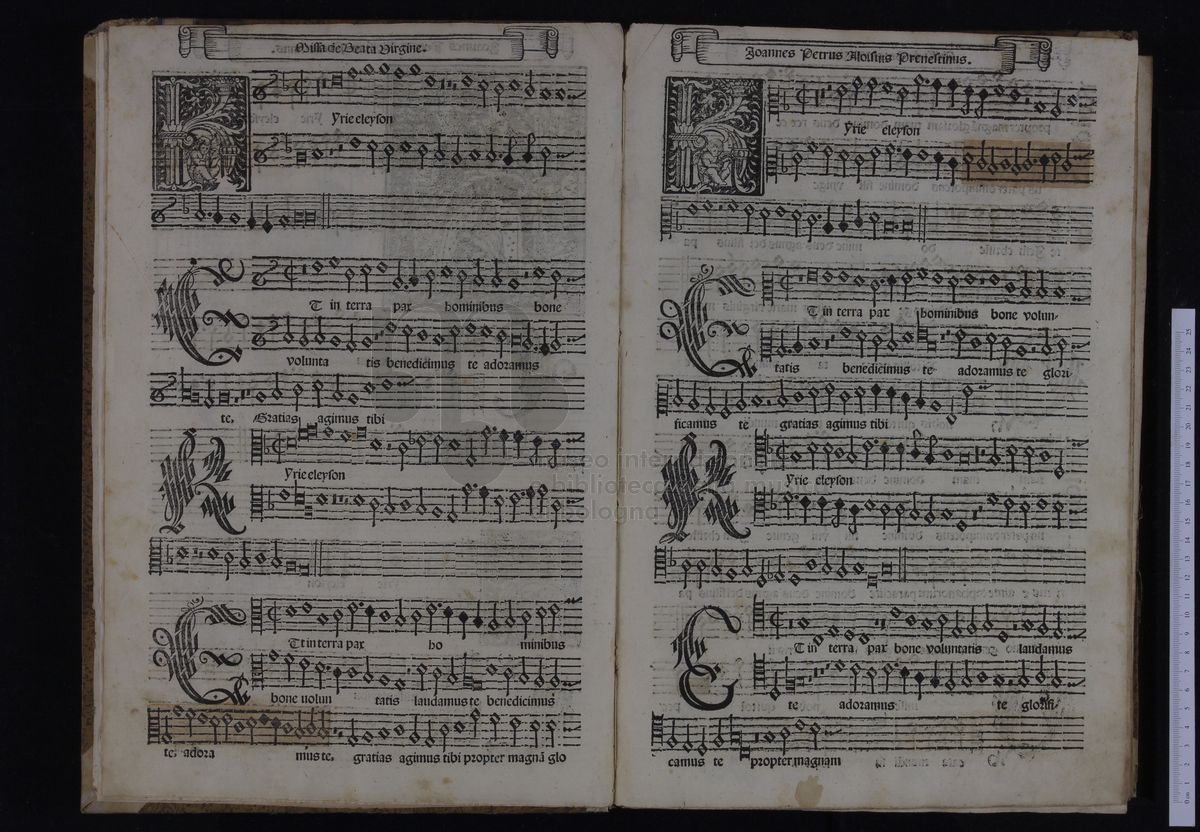 Missa de Beata Virgine.
Yrie eleyson
T in terra pax hominibus bone
volunta tis benedicimus te adoramus
te. Gratias agimus tibi
Yrie eleyson
T in terra pax ho minibus
bone uolun tatis laudamus te benedicimus
te. adora mus te. gratias agimus tibi propter magnã glo
Joannes Petrus Aloisius Prenestinus.
Yrie eleyson
T in terra pax hominibus bone volun-
tatis benedicimus te adoramus te glori-
ficamus te gratias agimus tibi
Yrie eleyson
T in terra. pax bone voluntatis laudamus
te adoramus te glorifi-
camus te propter magnam
museo internazionale
biblioteca mu
bologna